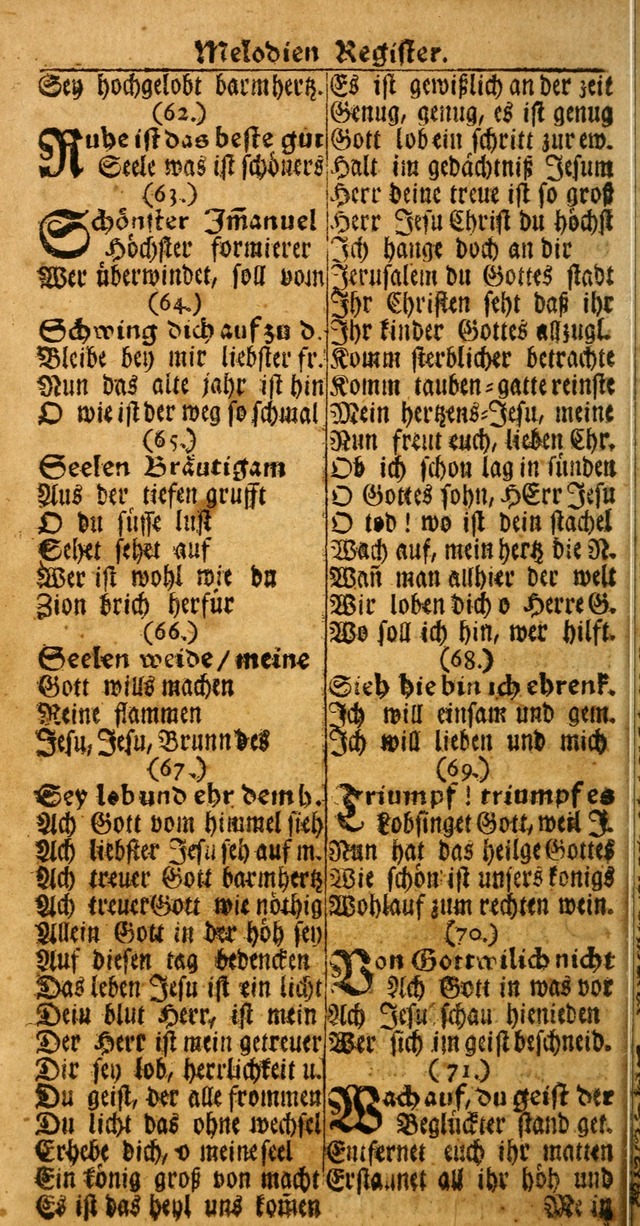 Melodien Register.
Sey hochgelobt barmhertz.
(62.)
Ruhe ist das beste gut
Seele was ist schöners
(63.)
Schönster Im̄anuel
Höchster formierer
Wer überwindet, soll vom
(64.)
Schwing dich auf zu d.
Bleibe bey mir liebster fr.
Nun das alte jahr ist hin
O wie ist der weg so schmal
(65.)
Seelen Bräutigam
Aus der tiefen grufft
O du süsse lust
Sehet sehet auf
Wer ist wohl wie du
Zion brich herfür
(66.)
Seelen weide/ meine
Gott wills machen
Meine flammen
Jesu, Jesu, Brunn des
(67.)
Sey lob und ehr dem h.
Ach Gott vom himmel sieh
Ach liebster Jesu seh auf m.
Ach treuer Gott barmhertz
Ach treuer Gott wie nöthig
Allein Gott in der höh sey
Auf diesen tag bedencken
Das leben Jesu ist ein licht
Dein blut Herr, ist mein
Der Herr ist mein getreuer
Dir sey lob, herrlichkeit u.
Du geist, der alle frommen
Du licht das ohne wechsel
Erhebe dich, o meine seel
Ein könig groß von macht
Es ist das heyl uns kom̄en
Es ist gewißlich an der zeit
Genug, genug, es ist genug
Gott lob ein schritt zur ew.
Halt im gedächtniß Jesum
Herr deine treue ist so groß
Herr Jesu Christ du höchst
Ich hange doch an dir
Jerusalem du Gottes stadt
Ihr Christen seht daß ihr
Ihr kinder Gottes allzugl.
Komm sterblicher betrachte
Komm tauben-gatte reinste
Mein hertzens-Jesu, meine
Nun freut euch, lieben Chr.
Ob ich schon lag in sünden
O Gottes sohn, HErr Jesu
O tod! wo ist dein stachel
Wach auf, mein hertz die N.
Wañ man allhier der welt
Wir loben dich o Herre G.
Wo soll ich hin, wer hilft.
(68.)
Sieh hie bin ich ehrenk.
Ich will einsam und gem.
Ich will lieben und mich
(69.)
Triumpf! triumpf es
Lobsinget Gott, weil J.
Nun hat das heilge Gottes
Wie schön ist unsers königs
Wohlauf zum rechten wein.
(70.)
Von Gott wil ich nicht
Ach Gott in was vor
Ach Jesu schau hienieden
Wer sich im geist beschneid.
(71.)
Wach auf, du geist der
Beglückter stand get.
Entfernet euch ihr matten
Erstaunet all ihr höh und
Mein